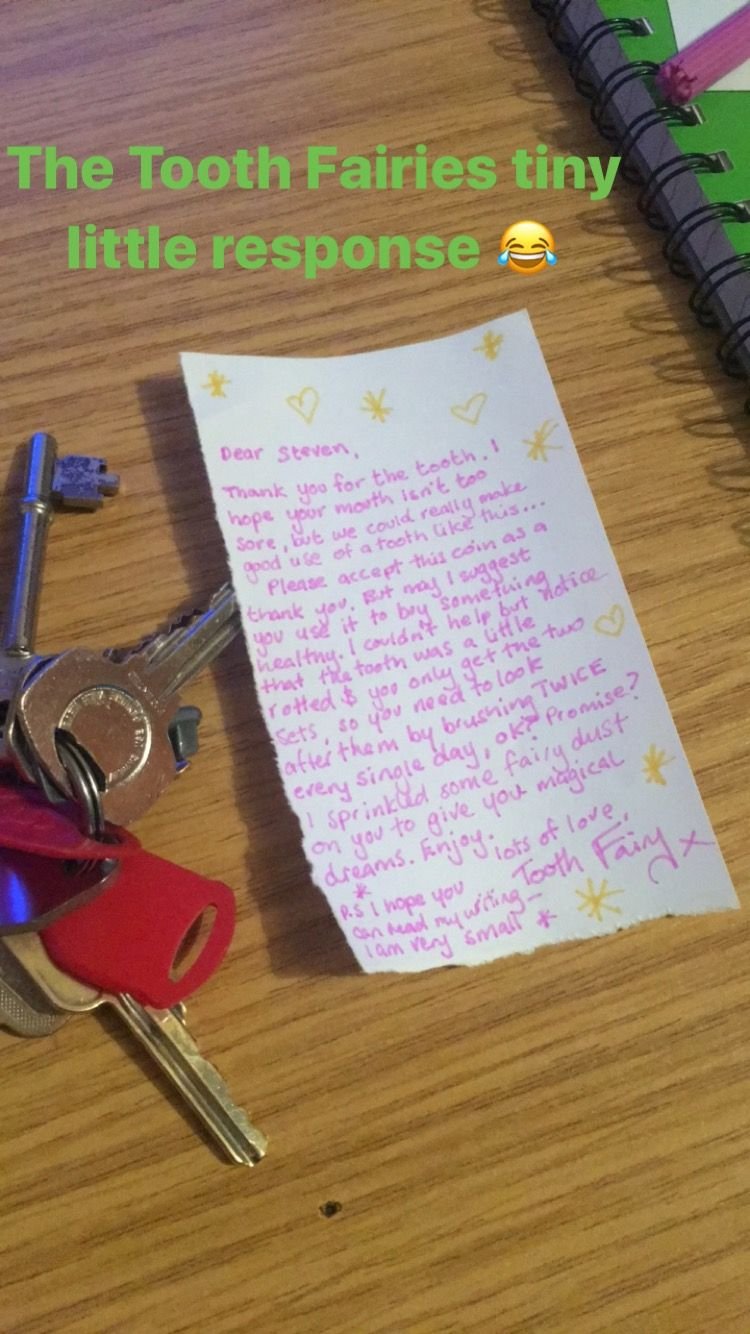 The Tooth Fairies tiny
little response 😂
Dear Steven,
Thank you for the tooth. I
hope your mouth isn't too
sore, but we could really make
good use of a tooth like this...
Please accept this coin as a
thank you. But may I suggest
you use it to buy something
healthy. I couldn't help but notice
that the tooth was a little
rotted & you only get the two
sets, so you need to look
after them by brushing TWICE
every single day, ok? Promise?
I sprinkled some fairy dust
on you to give you magical
dreams. Enjoy.
lots of love,
Tooth Fairy x
* P.S I hope you
can read my writing -
I am very small *